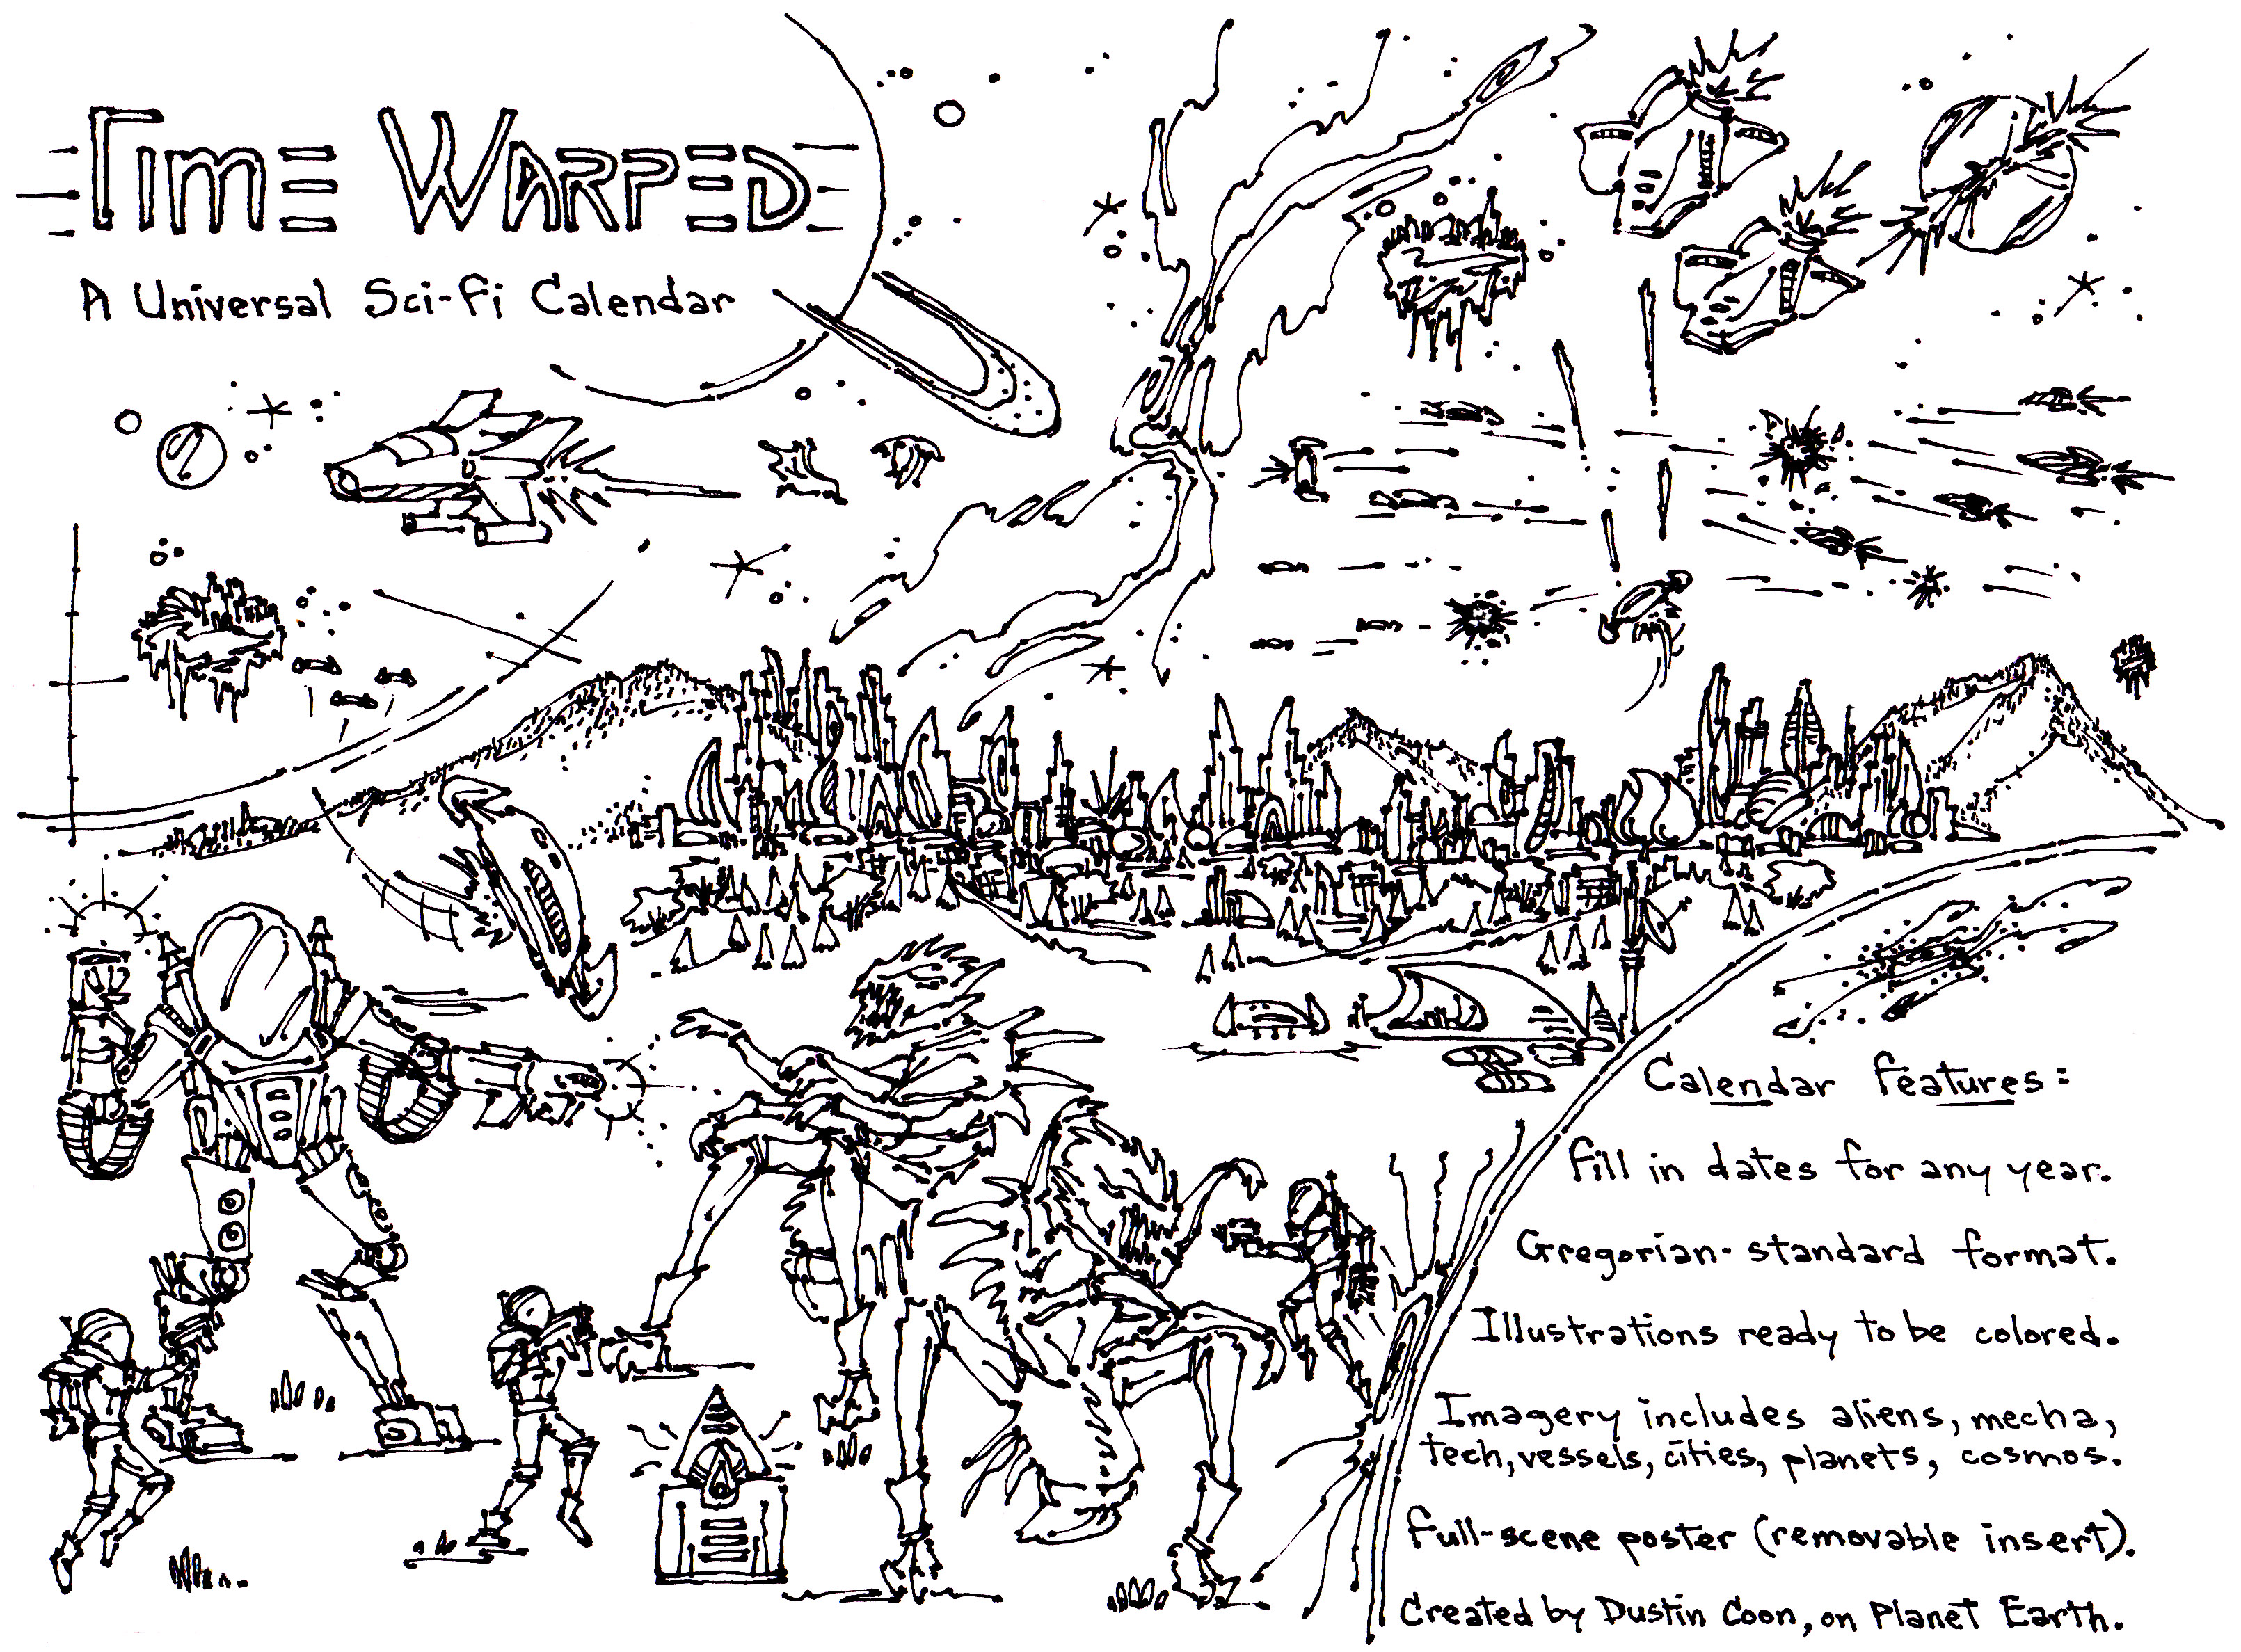 Time Warped
A Universal Sci-Fi Calendar
Calendar Features:
Fill in dates for any year.
Gregorian-standard format.
Illustrations ready to be colored.
Imagery includes aliens, mecha,
tech, vessels, cities, planets, cosmos.
Full-scene poster (removable insert).
Created by Dustin Coon, on Planet Earth.